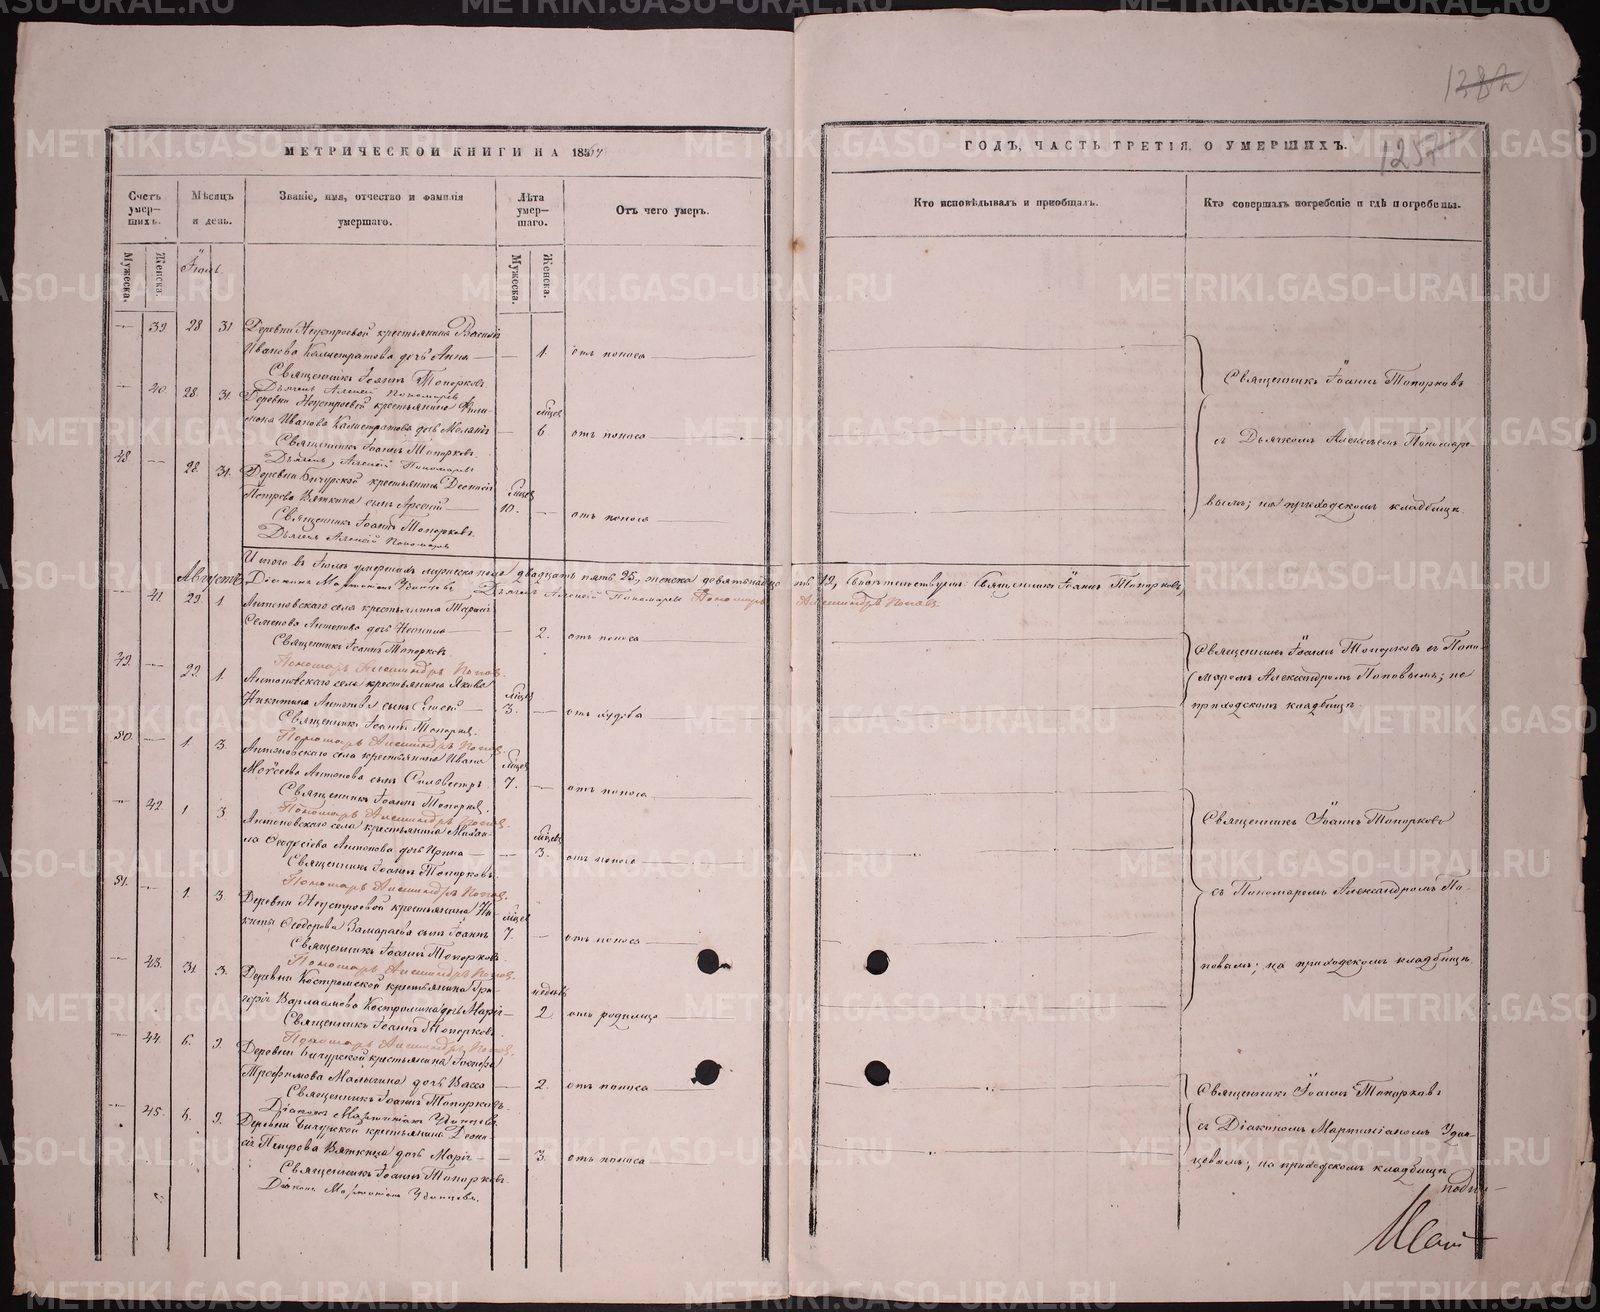 1382
1257
МЕТРИЧЕСКОЙ КНИГИ НА 18
ГОДЪ, ЧАСТЬ ТРЕТІЯ, О УМЕРШИХЪ.
Счетъ умер-
шихъ.
Мѣсяцъ
и день.
Званіе, имя, отчество и фамилія
умершаго.
Лѣта
умер-
шаго.
Отъ чего умеръ.
Кто исповѣдывалъ и пріобщалъ.
Кто совершалъ погребеніе и гдѣ погребены.
Мужеска.
Женска.
Мужеска.
Женска.
Іюль
39 28 31 Деревни Неустроевой крестьянина Василія
Иванова Калистратова дочь Анна 1. отъ поноса
Священникъ Іоаннъ Топорковъ.
Дьячекъ Алексѣй Пономаревъ
40 28 31 Деревни Неустроевой крестьянина Фили-
мона Иванова Калистратова дочь Меланія мѣсяц 6 отъ поноса
Священникъ Іоаннъ Топорковъ.
Дьячекъ Алексѣй Пономаревъ
48 28 31 Деревни Бичурской крестьянина Діонисія
Петрова Вяткина сынъ Арсеній 10. отъ поноса
Священникъ Іоаннъ Топорковъ.
Дьячекъ Алексѣй Пономаревъ
Священникъ Іоаннъ Топорковъ
съ Дьячкомъ Алексѣемъ Пономаре-
вымъ; на приходскомъ кладбищѣ
Итого въ Іюлѣ умершихъ мужеска пола двадцать пять 25, женска девятнадцать 19, Свидѣтельствуютъ: Священникъ Іоаннъ Топорковъ,
Діаконъ Мартиніанъ Удинцовъ Дьячекъ Алексѣй Пономаревъ Пономарь Александръ Поповъ.
Августъ
41. 29. 1. Антоновскаго села крестьянина
Семенова Антонова дочь 2. отъ поноса
Священникъ Іоаннъ Топорковъ.
Пономарь Александръ Поповъ.
49. 29. 1. Антоновскаго села крестьянина Якова
Никитина Антонова сынъ 3. отъ
Священникъ Іоаннъ Топорковъ.
Пономарь Александръ Поповъ.
Священникъ Іоаннъ Топорковъ съ Поно-
маремъ Александромъ Поповымъ; на
приходскомъ кладбищѣ
50. 1. 3. Антоновскаго села крестьянина Ивана
Моѵсеева Антонова сынъ Сильвестръ 7. отъ поноса
Священникъ Іоаннъ Топорковъ.
Пономарь Александръ Поповъ.
42. 1 3 Антоновскаго села крестьянина Михаи-
ла Антонова дочь Ирина 3. отъ поноса
Священникъ Іоаннъ Топорковъ.
Пономарь Александръ Поповъ.
51. 1. 3. Деревни Неустроевой крестьянина Ни-
киты Ѳеодорова Замараева сынъ Іоаннъ 7. отъ поноса
Священникъ Іоаннъ Топорковъ.
Пономарь Александръ Поповъ.
43. 31 3. Деревни Костромской крестьянина Гри-
горія Варлаамова Костромина дочь Марія недѣль 2 отъ родимца
Священникъ Іоаннъ Топорковъ.
Пономарь Александръ Поповъ.
Священникъ Іоаннъ Топорковъ
съ Пономаремъ Александромъ По-
повымъ; на приходскомъ кладбищѣ
44. 6. 9. Деревни Бичурской крестьянина
Трофимова Малыгина дочь Васса 2. отъ поноса
Священникъ Іоаннъ Топорковъ.
Діаконъ Мартиніанъ Удинцовъ.
45. 6. 9. Деревни Бичурской крестьянина Діони-
сія Петрова Вяткина дочь Марія 3. отъ поноса
Священникъ Іоаннъ Топорковъ.
Діаконъ Мартиніанъ Удинцовъ.
Священникъ Іоаннъ Топорковъ
съ Діакономъ Мартиніаномъ Удин-
цовымъ; на приходскомъ кладбищѣ
METRIKI.GASO-URAL.RU